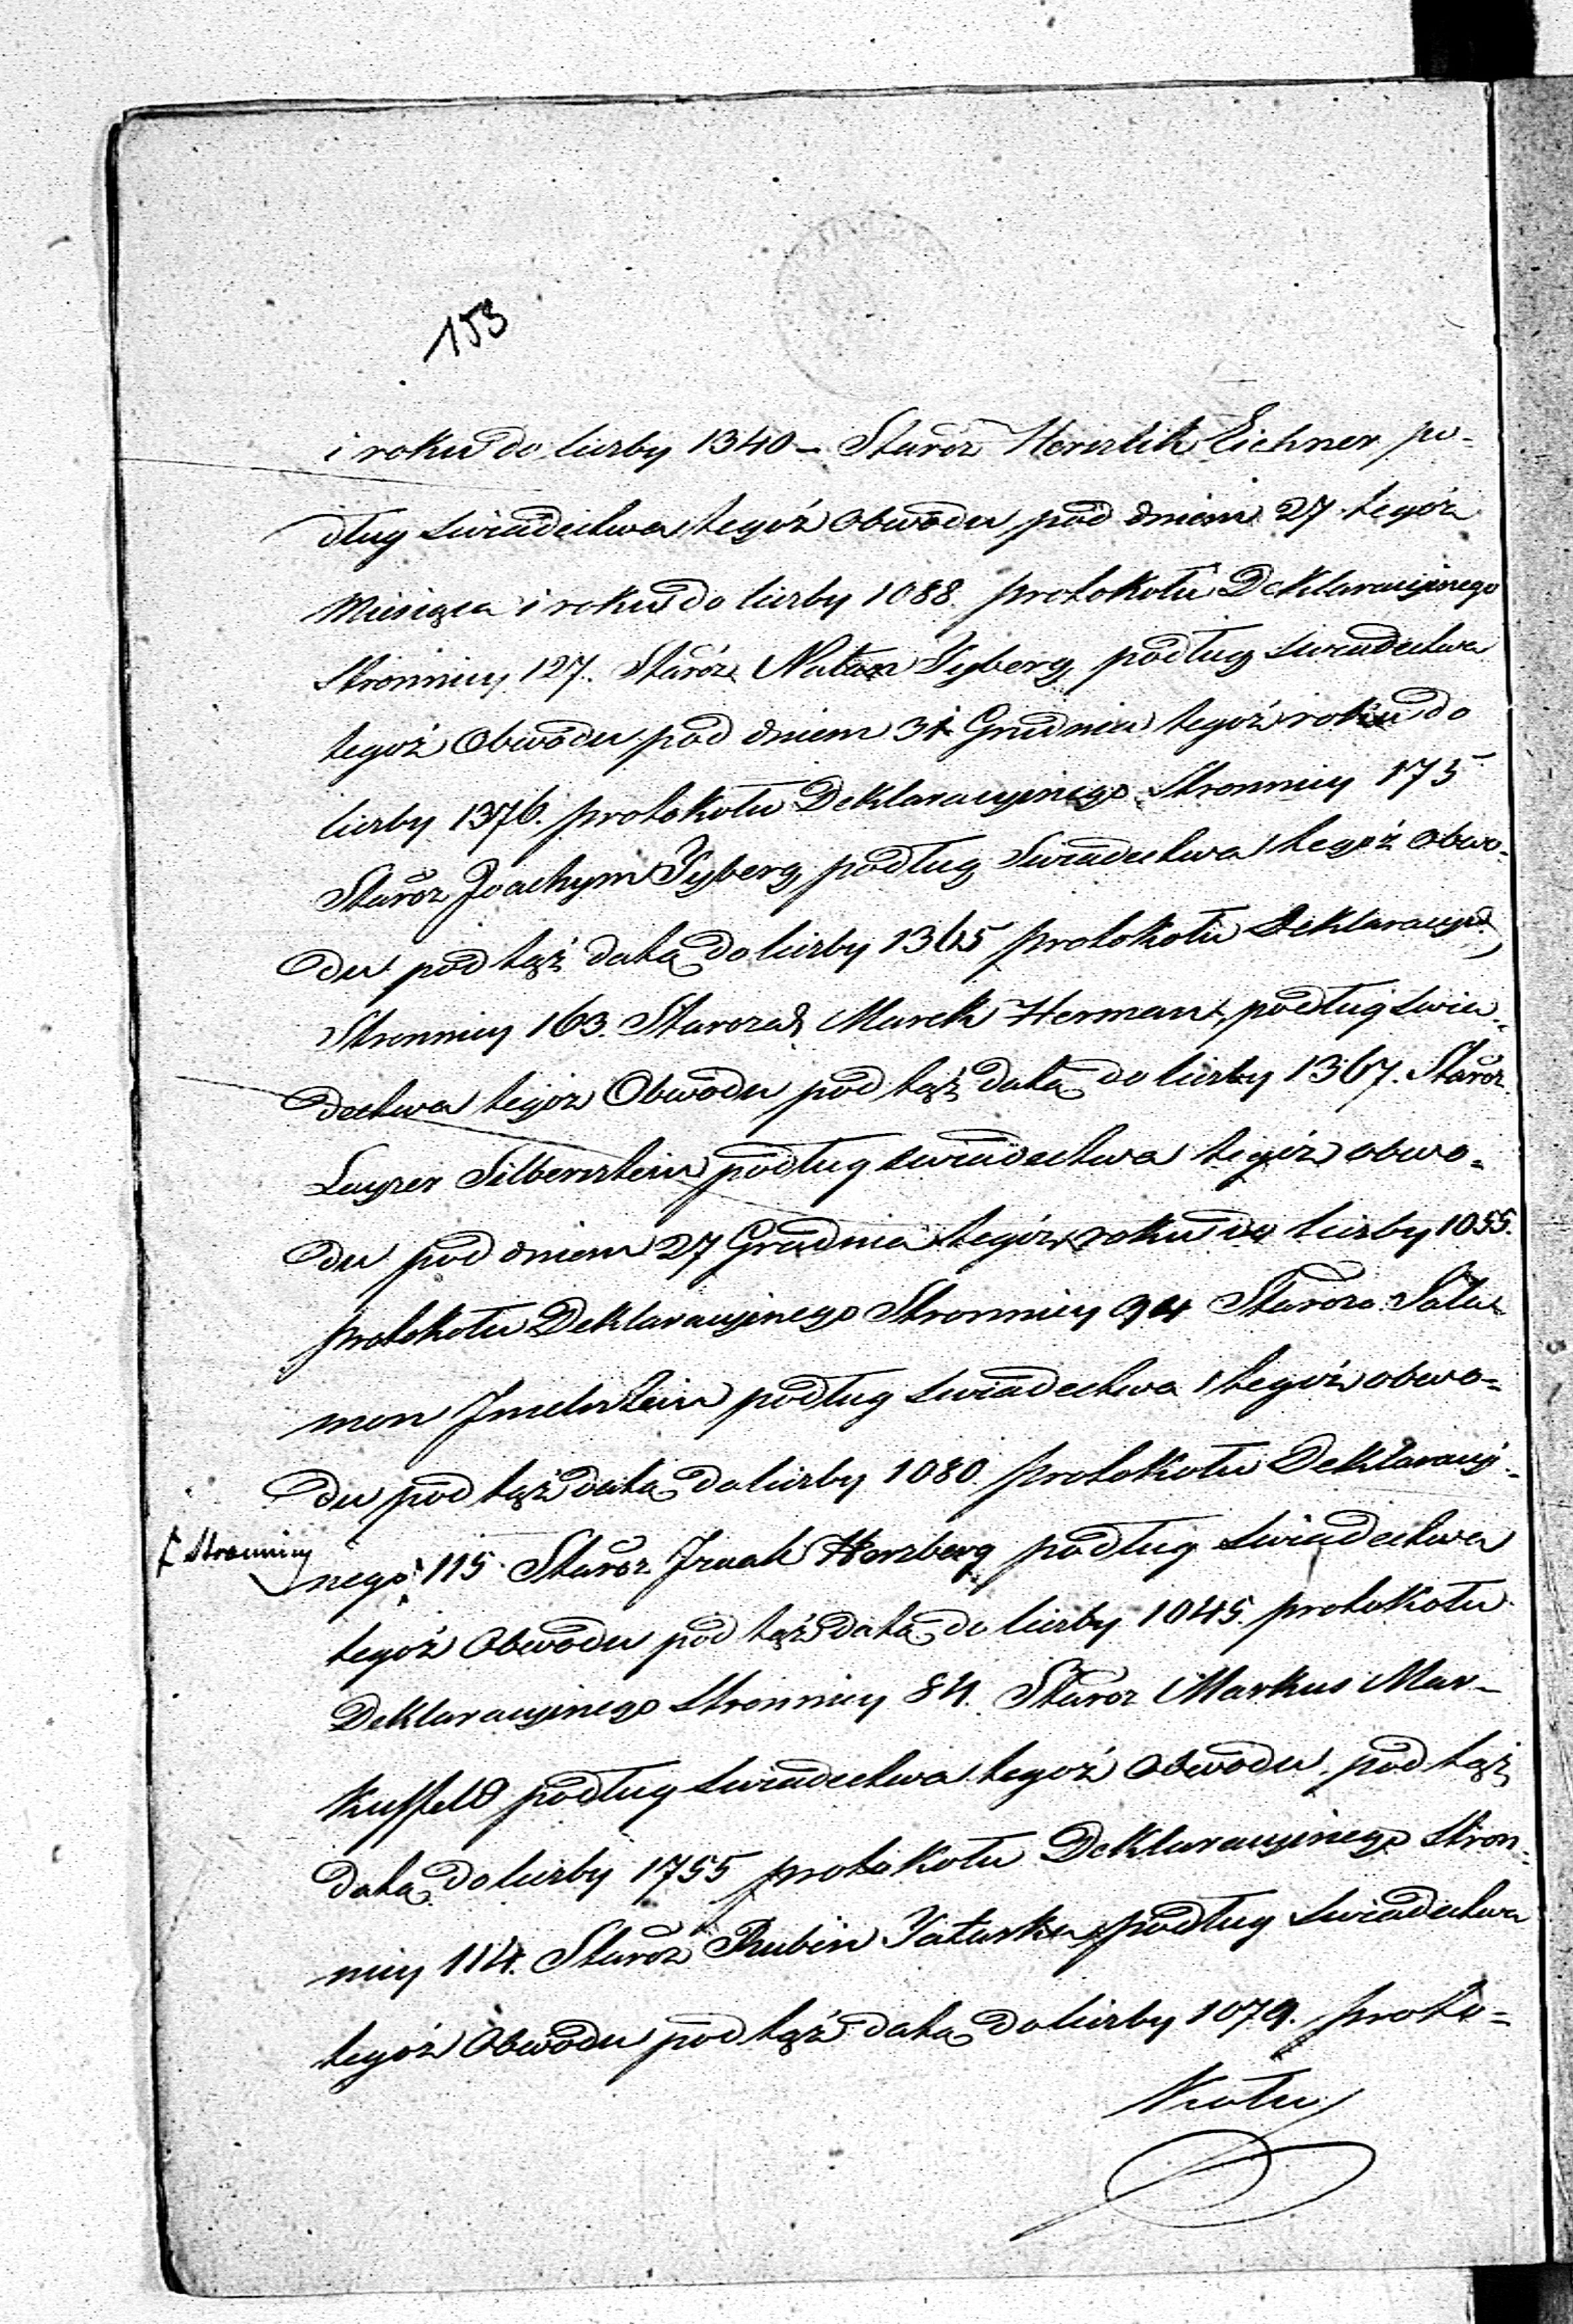 153
i roku do liczby 1340 – Staroz Herszlik Eichner po-
dług swiadectwa tegoż Obwodu pod dniem 27 tegoż
Miesiąca i roku do liczby 1088. protokołu Deklaracyjnego
Stronnicy 127. Staroz. Natan Zyberg podług swiadectwa
tegoż Obwodu pod dniem 31 Grudnia tegoż roku do
liczby 1376. protokołu Deklaracyjnego Stronnicy 175
Staroz Joachym Zyberg podług Swiadectwa tegoż obwo-
du pod tąż datą do liczby 1365 protokołu Deklaracyj
Stronnicy 163. Staroza Marek Herman podług swia-
dectwa tegoż Obwodu pod tąż datą do liczby 1367. Staroz
Layzer Silberstein podług swiadectwa tegoż obwo-
du pod dniem 27 Grudnia tegoż roku do liczby 1055.
protokołu Deklaracyjnego Stronnicy 94 Staroza. Sala-
mon podług swiadectwa tegoż obwo-
du pod tąż datą do liczby 1080 protokołu Deklaracyj-
Stronnicy
nego 115. Staroz Herzberg podług swiadectwa
tegoż Obwodu pod tąż datą do liczby 1045. protokołu
Deklaracyjnego Stronnicy 84. Staroz Markus Mar-
kusfeld podług swiadectwa tegoż Obwodu pod tąż
datą do liczby 1755 protokołu Deklaracyjnego Stron-
nicy 114. Staroz Rubin podług swiadectwa
tegoż Obwodu pod tąż datą do liczby 1079. proto-
kołu